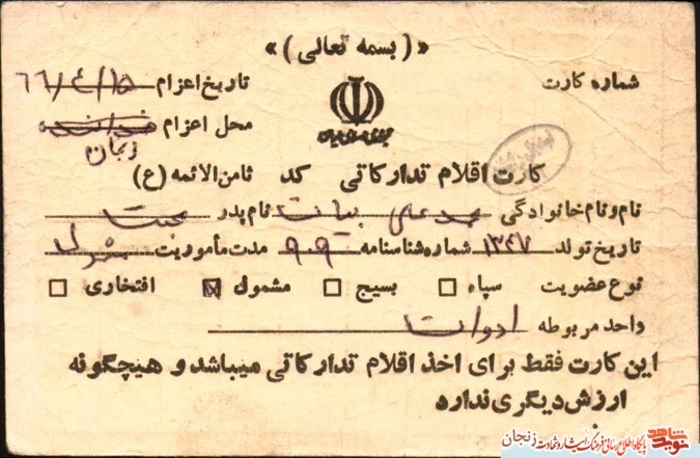 «(بسمه تعالی)»
شماره کارت
تاریخ اعزام ۶۶/۴/۱۵
محل اعزام
زنجان
کارت اقلام تدارکاتی کد ثامن الائمه (ع)
نام و نام خانوادگی محمد علی بیات نام پدر حجت
تاریخ تولد ۱۳۴۷ شماره شناسنامه ۹۰۹ مدت مأموریت
نوع عضویت سپاه بسیج مشمول افتخاری
واحد مربوطه ادوات
این کارت فقط برای اخذ اقلام تدارکاتی میباشد و هیچگونه
ارزش دیگری ندارد
نوید شاهد
پایگاه اطلاع رسانی فرهنگ ایثار و شهادت زنجان